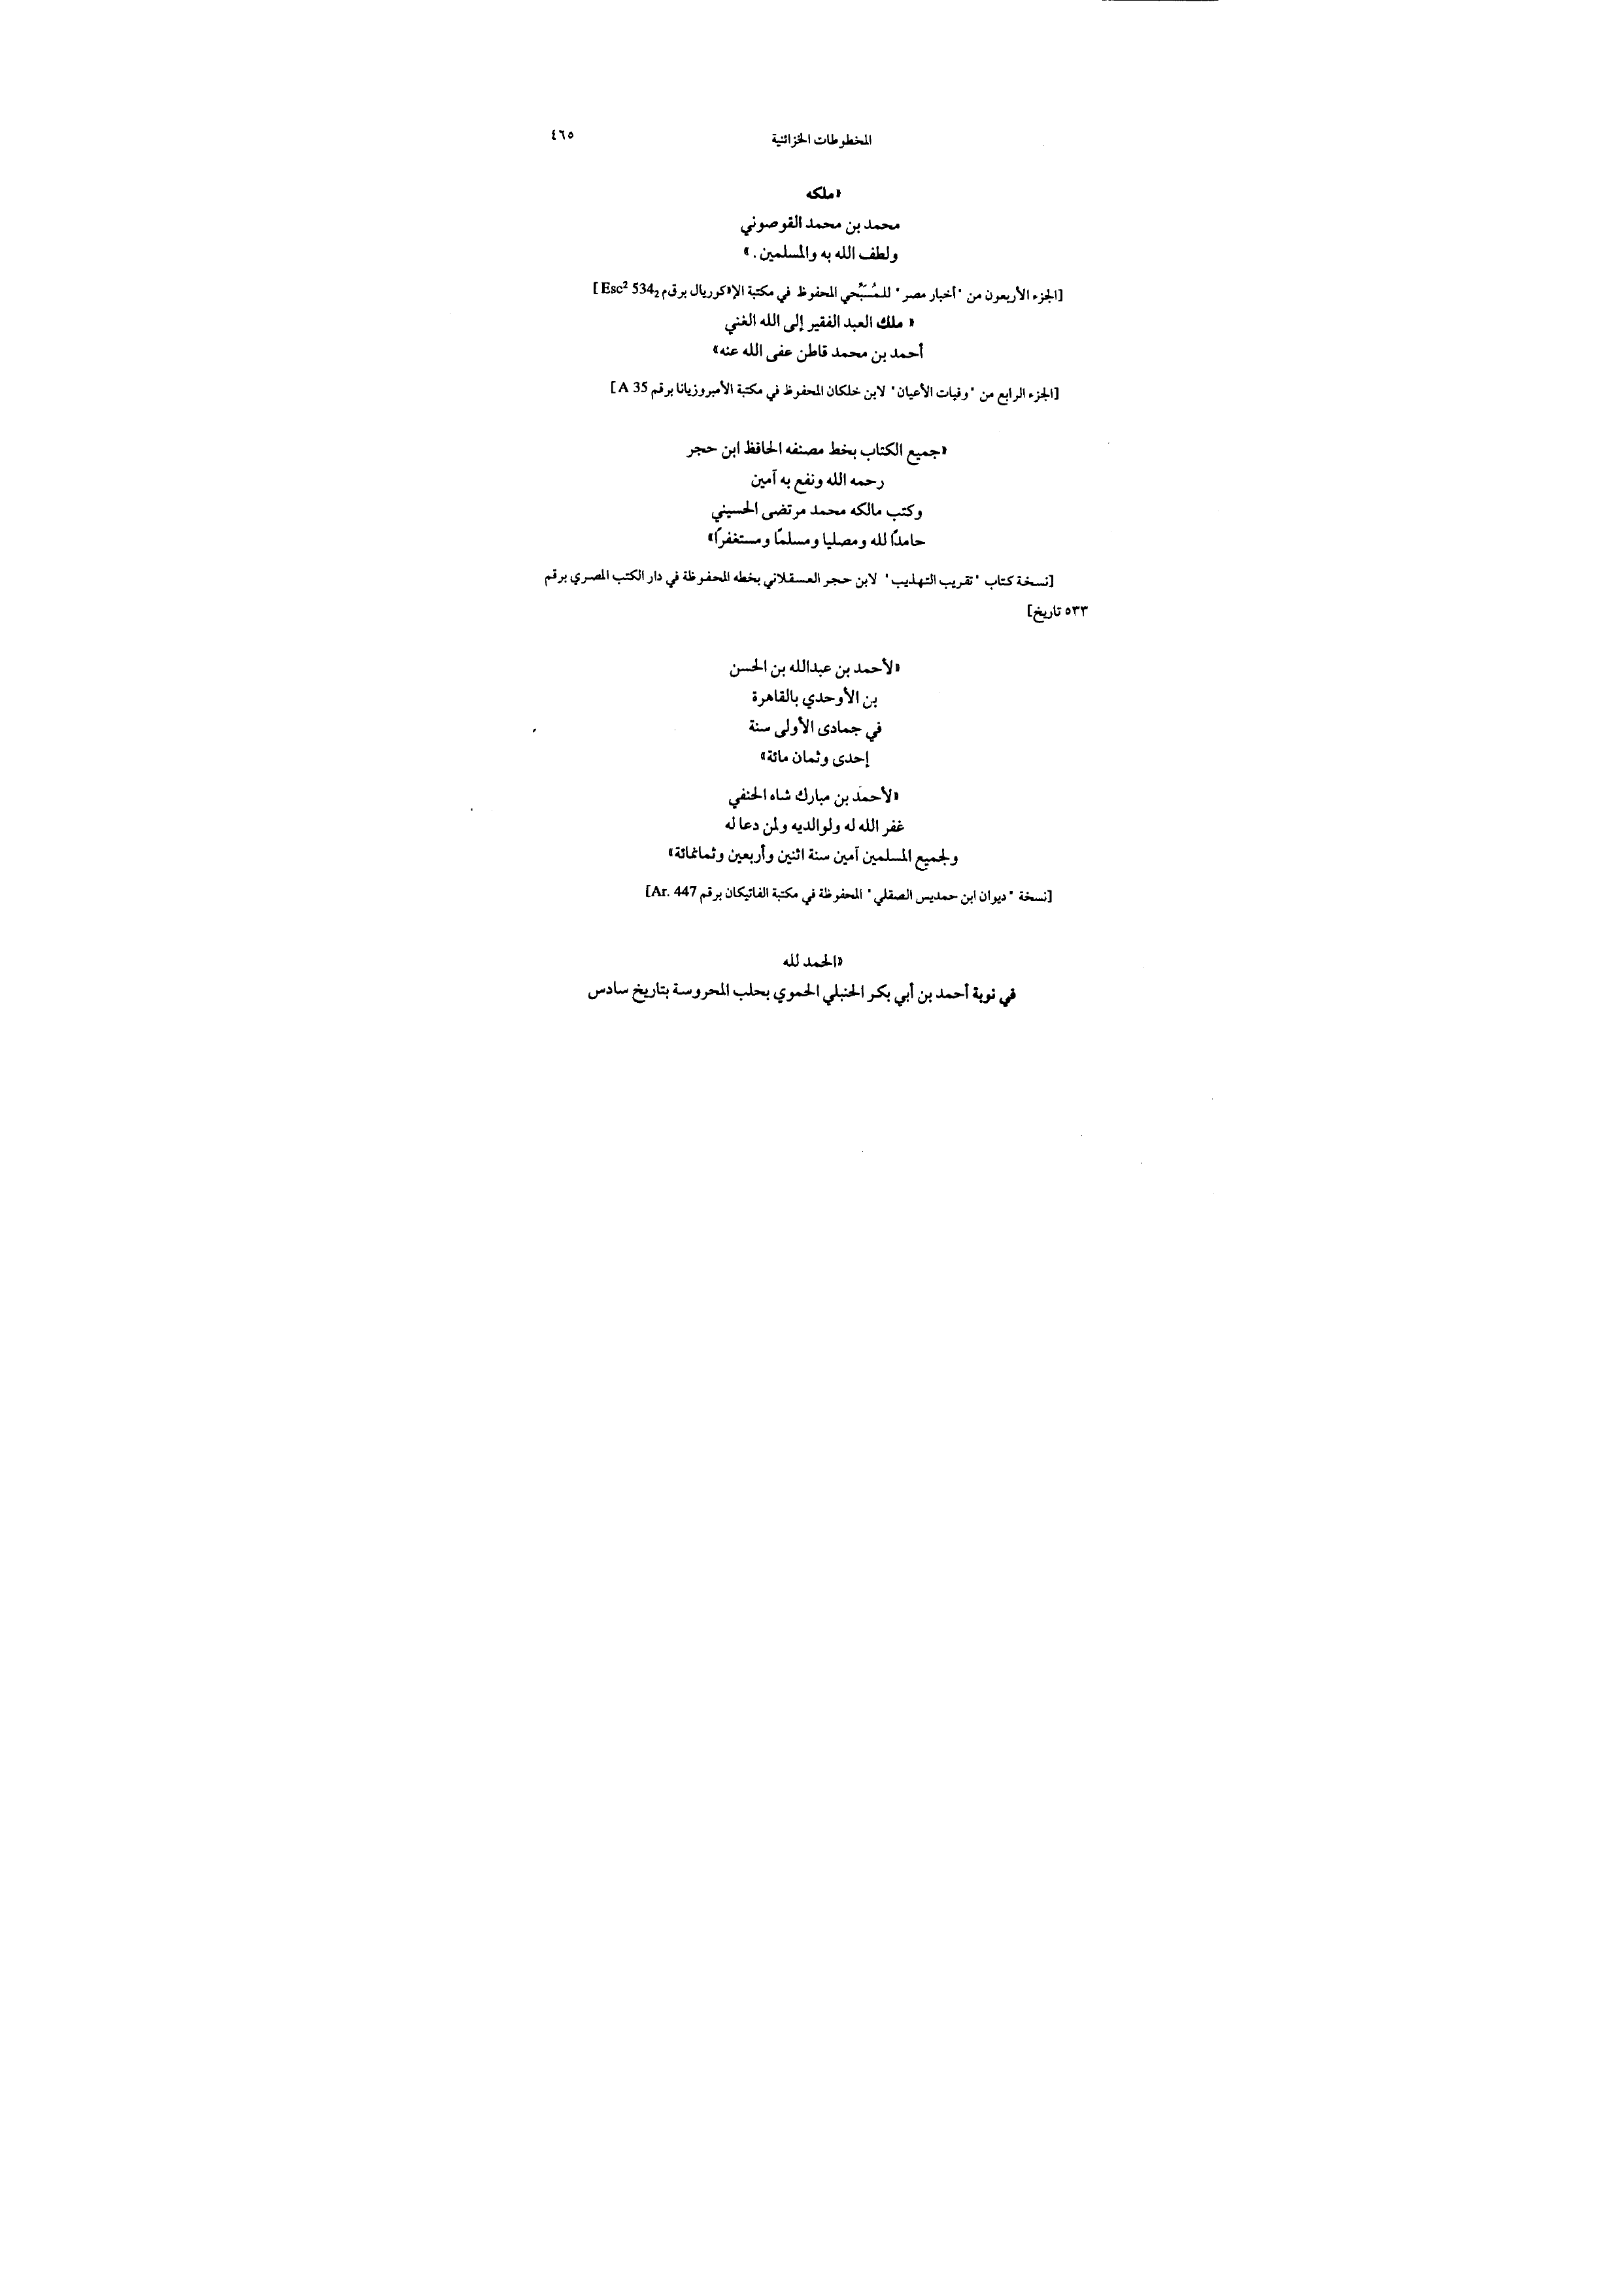 المخطوطات الخزائنية ٤٦٥
«ملكه
محمد بن محمد القوصوني
ولطف الله به والمسلمين .»
[الجزء الأربعون من "أخبار مصر" للمُسَبِّحي المحفوظ في مكتبة الإ«كوريال برقم Esc² 534₂ ]
« ملك العبد الفقير إلى الله الغني
أحمد بن محمد قاطن عفى الله عنه»
[الجزء الرابع من "وفيات الأعيان" لابن خلكان المحفوظ في مكتبة الأمبروزيانا برقم A 35 ]
«جميع الكتاب بخط مصنفه الحافظ ابن حجر
رحمه الله ونفع به آمين
وكتب مالكه محمد مرتضى الحسيني
حامدًا لله ومصليا ومسلمًا ومستغفرًا»
[نسخة كتاب "تقريب التهذيب" لابن حجر العسقلاني بخطه المحفوظة في دار الكتب المصري برقم
٥٣٣ تاريخ]
«لأحمد بن عبدالله بن الحسن
بن الأوحدي بالقاهرة
في جمادى الأولى سنة
إحدى وثمان مائة»
«لأحمد بن مبارك شاه الحنفي
غفر الله له ولوالديه ولمن دعا له
ولجميع المسلمين آمين سنة اثنين وأربعين وثمانمائة»
[نسخة "ديوان ابن حمديس الصقلي" المحفوظة في مكتبة الفاتيكان برقم Ar. 447]
«الحمد لله
في نوبة أحمد بن أبي بكر الحنبلي الحموي بحلب المحروسة بتاريخ سادس